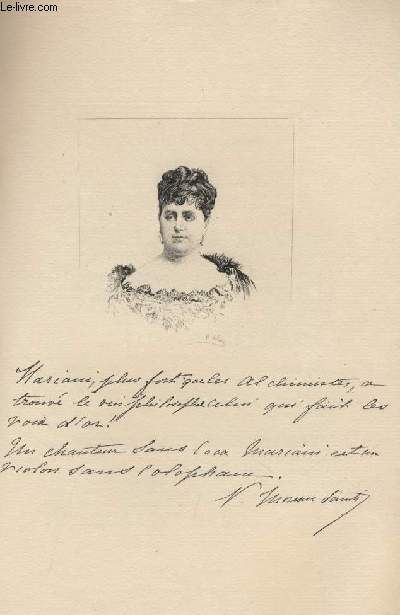 © Le-livre.com
Mariani, plus fort que les Alchimistes, a
trouvé le vin celui qui fait les
voix d'or!
Un chanteur sans Coca Mariani est un
violon sans colophane.